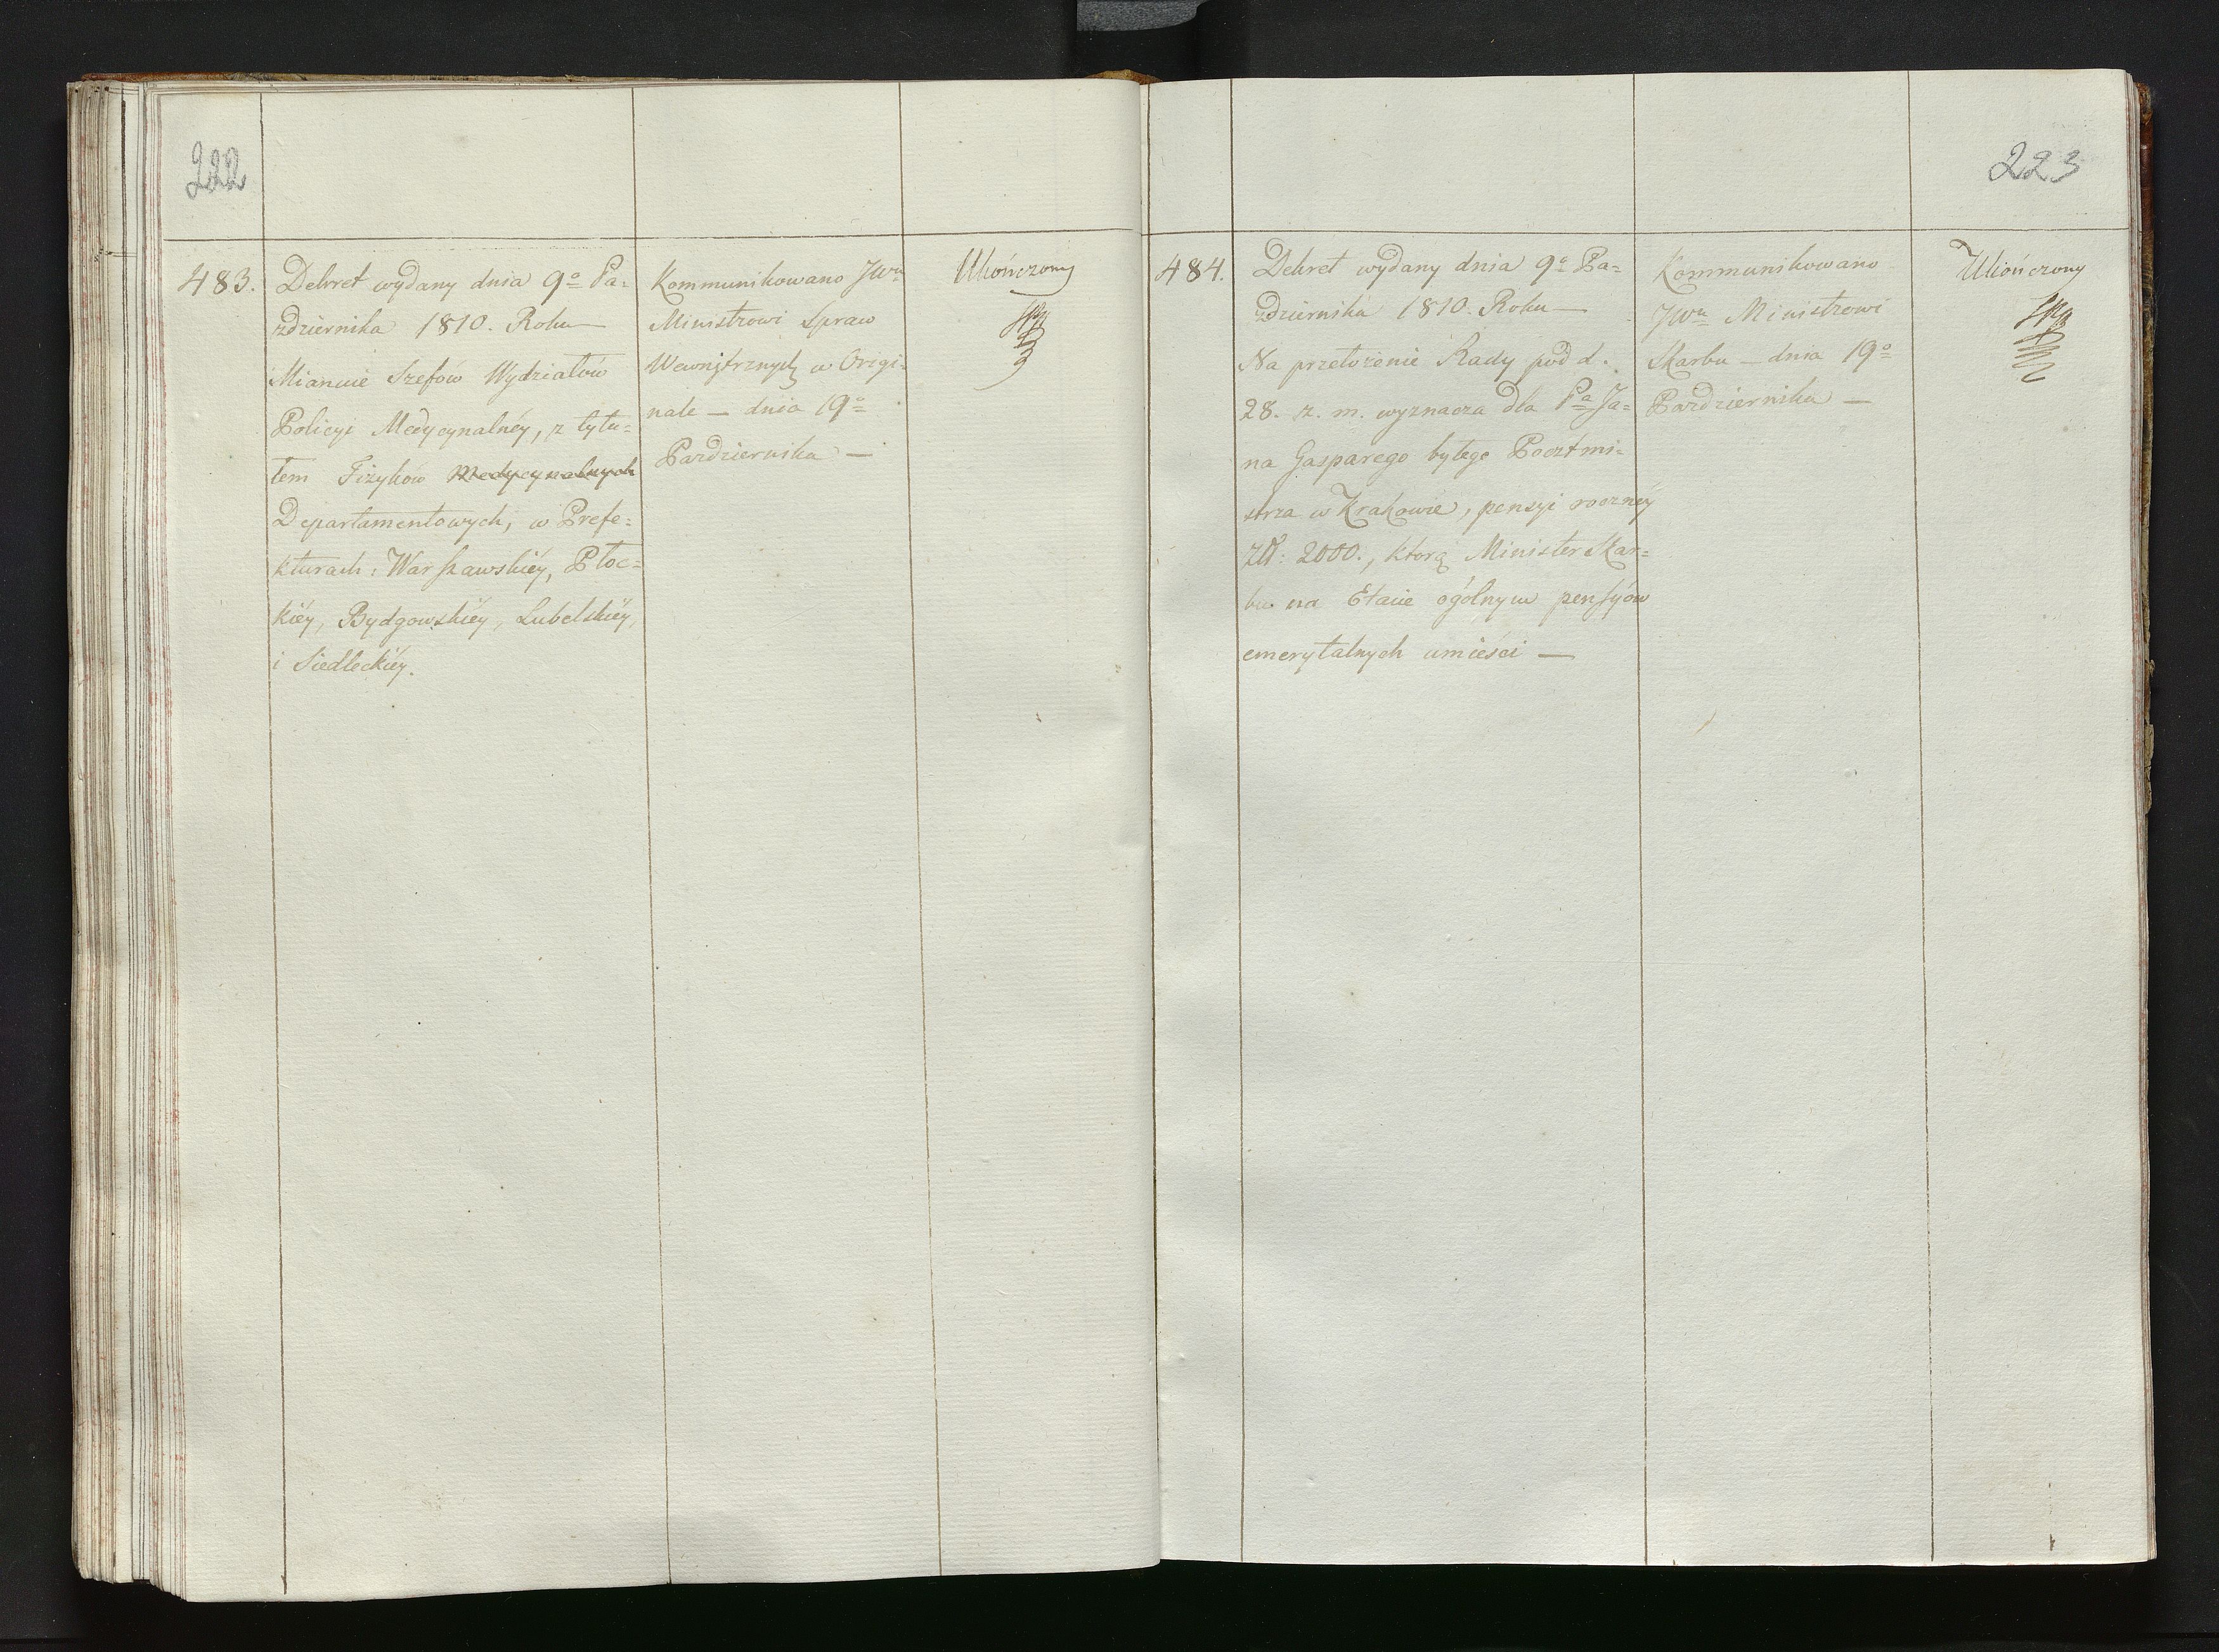 222
483.
Dekret wydany dnia 9o Pa=
zdziernika 1810. Roku —
Mianuie Szefów Wydziałów
Policyi Medycynalnéy, z tytu=
łem Fizyków Medycynalnych
Departamentowych, w Prefe=
kturach: Warszawskiéy, Płoc=
kiéy, Bydgowskiéy, Lubelskiéy,
i Siedleckiéy.
Kommunikowano JWu
Ministrowi Spraw
Wewnętrznych w Origi=
nale — dnia 19o
Pazdziernika —
Ukończony
223
484.
Dekret wydany dnia 9o Pa=
zdziernika 1810. Roku —
Na przełożenie Rady pod d.
28. z. m. wyznacza dla Pa Ja=
na Gasparego byłego Pocztmi=
strza w Krakowie, pensyi rocznéy
Złł: 2000., którą Minister Skar=
bu na Etacie ogólnym pensyów
emerytalnych umieści —
Kommunikowano
JWu Ministrowi
Skarbu — dnia 19o
Pazdziernika —
Ukończony